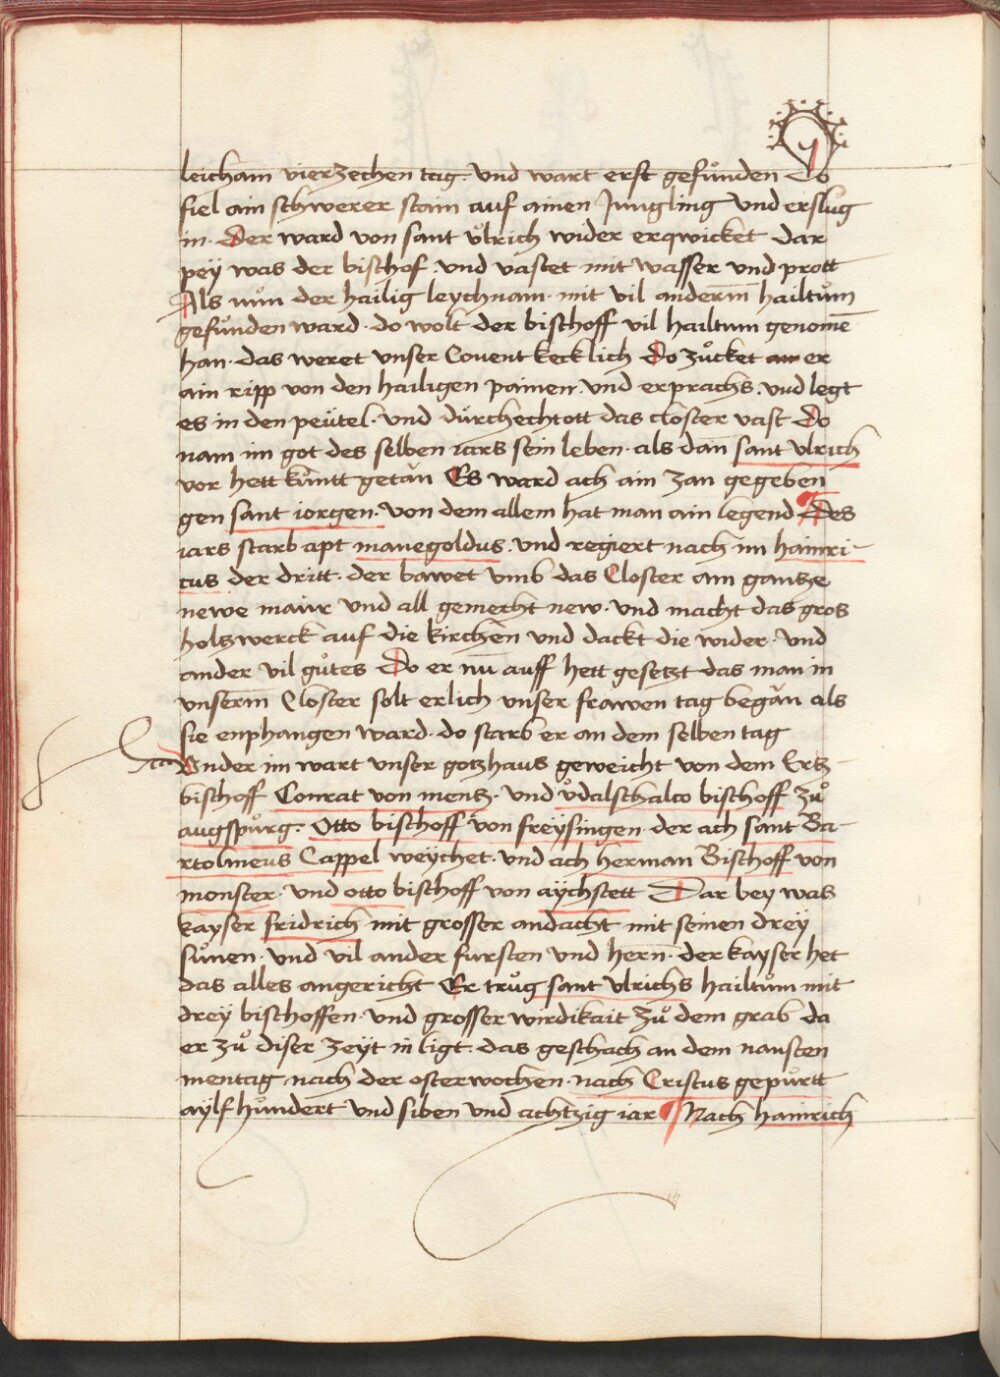 leicham vierzechen tag. und wart erst gefůnden Do
fiel ain schwerer stain auf ainen Jungling und erslůg
in. Der ward von sant ůlrich wider erqwicket dar
pey was der bischof. und vastet mit wasser und prott
Als nůn der hailig leychnam. mit vil anderm̄ hailtům
gefůnden ward. do wolt der bischoff vil hailtum genomē
han. das weret unser Covent kecklich Do zůcket er
ain ripp von den hailigen painen. und erprachs. und legt
es in den peütel. und důrchechtott das closter vast Do
nam im got des selben iars sein leben. als dan̄ sant Vlrich
vor hett kůntt getăn Es ward ach ain zan gegeben
gen sant iorgen. von dem allem hat man ain legend Des
iars starb apt manegoldus. und regiert nach im hainri-
cus der dritt. der bawet umb das Closter ain gantze
newe maur und all gemecht new. und macht das gros
holtzwerck auf die kirchen und dackt die wider. und
ander vil gůtes Do er nu auff hett gesetzt das man in
unserm̄ Closter solt erlich unser frawen tag begăn als
sie enphangen ward. do starb er an dem selben tag
Under im wart unser gotzhaus geweicht von dem Ertz-
bischoff Conrat von mentz. und ůdalschalco bischoff zů
augspůrg. Otto bischoff von freysingen. der ach sant Ba-
rtolmeus Cappel weychet. und ach herman Bischoff von
monster. und otto bischoff von aychstett Dar bey was
kayser fridrich mit grosser andacht mit seinen drey
sůnen. und vil ander fursten und hern̄. der kayser het
das alles angericht Er trůg sant Vlrichs hailtům mit
drey bischoffen. und grosser wirdikait zů dem grab da
er zů diser zeyt in ligt. das geschach an dem nausten
mentag nach der osterwochen. nach Cristus gepůrtt
aylf hůndert und siben und achtzig iar Nach hainrich